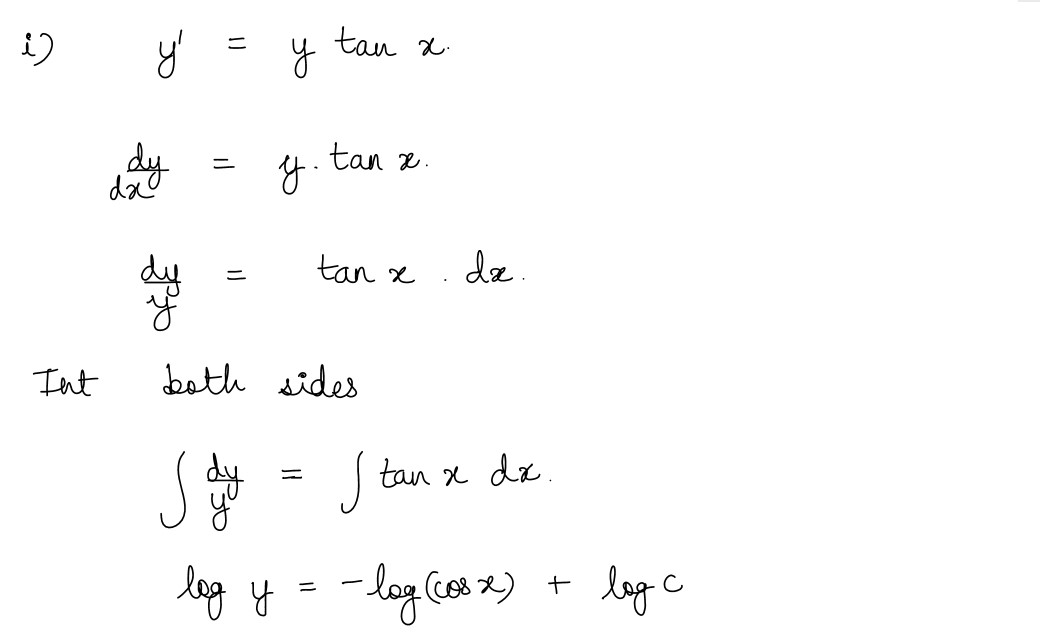 i) y' = y tan x.
dy/dx = y . tan x.
dy/y = tan x . dx.
Int both sides
∫ dy/y = ∫ tan x dx.
log y = -log(cos x) + log c